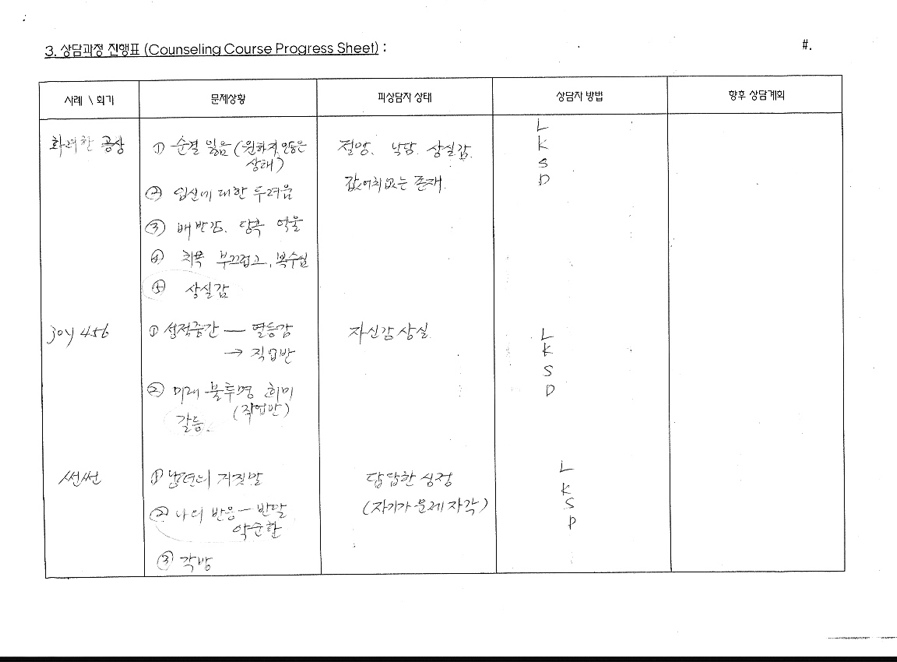 3. 상담과정 진행표 (Counseling Course Progress Sheet) :
#.
사례 \ 회기
문제상황
피상담자 상태
상담자 방법
향후 상담계획
화려한 공상
① 순결 잃음 (원하지 않은
상태)
② 임신에 대한 두려움
③ 배반감, 당혹 억울
④ 치욕 부끄럽고, 복수심
⑤ 상실감
절망, 낙담, 상실감,
값어치없는 존재.
L
K
S
D
joy 456
① 성적중간 — 열등감
→ 직업반
② 미래 불투명 희미
(직업반)
갈등.
자신감 상실.
L
K
S
D
썬썬
① 남편의 거짓말
② 나의 반응 — 반말
악순환
③ 각방
답답한 심정
(자기가 문제 자각)
L
K
S
D